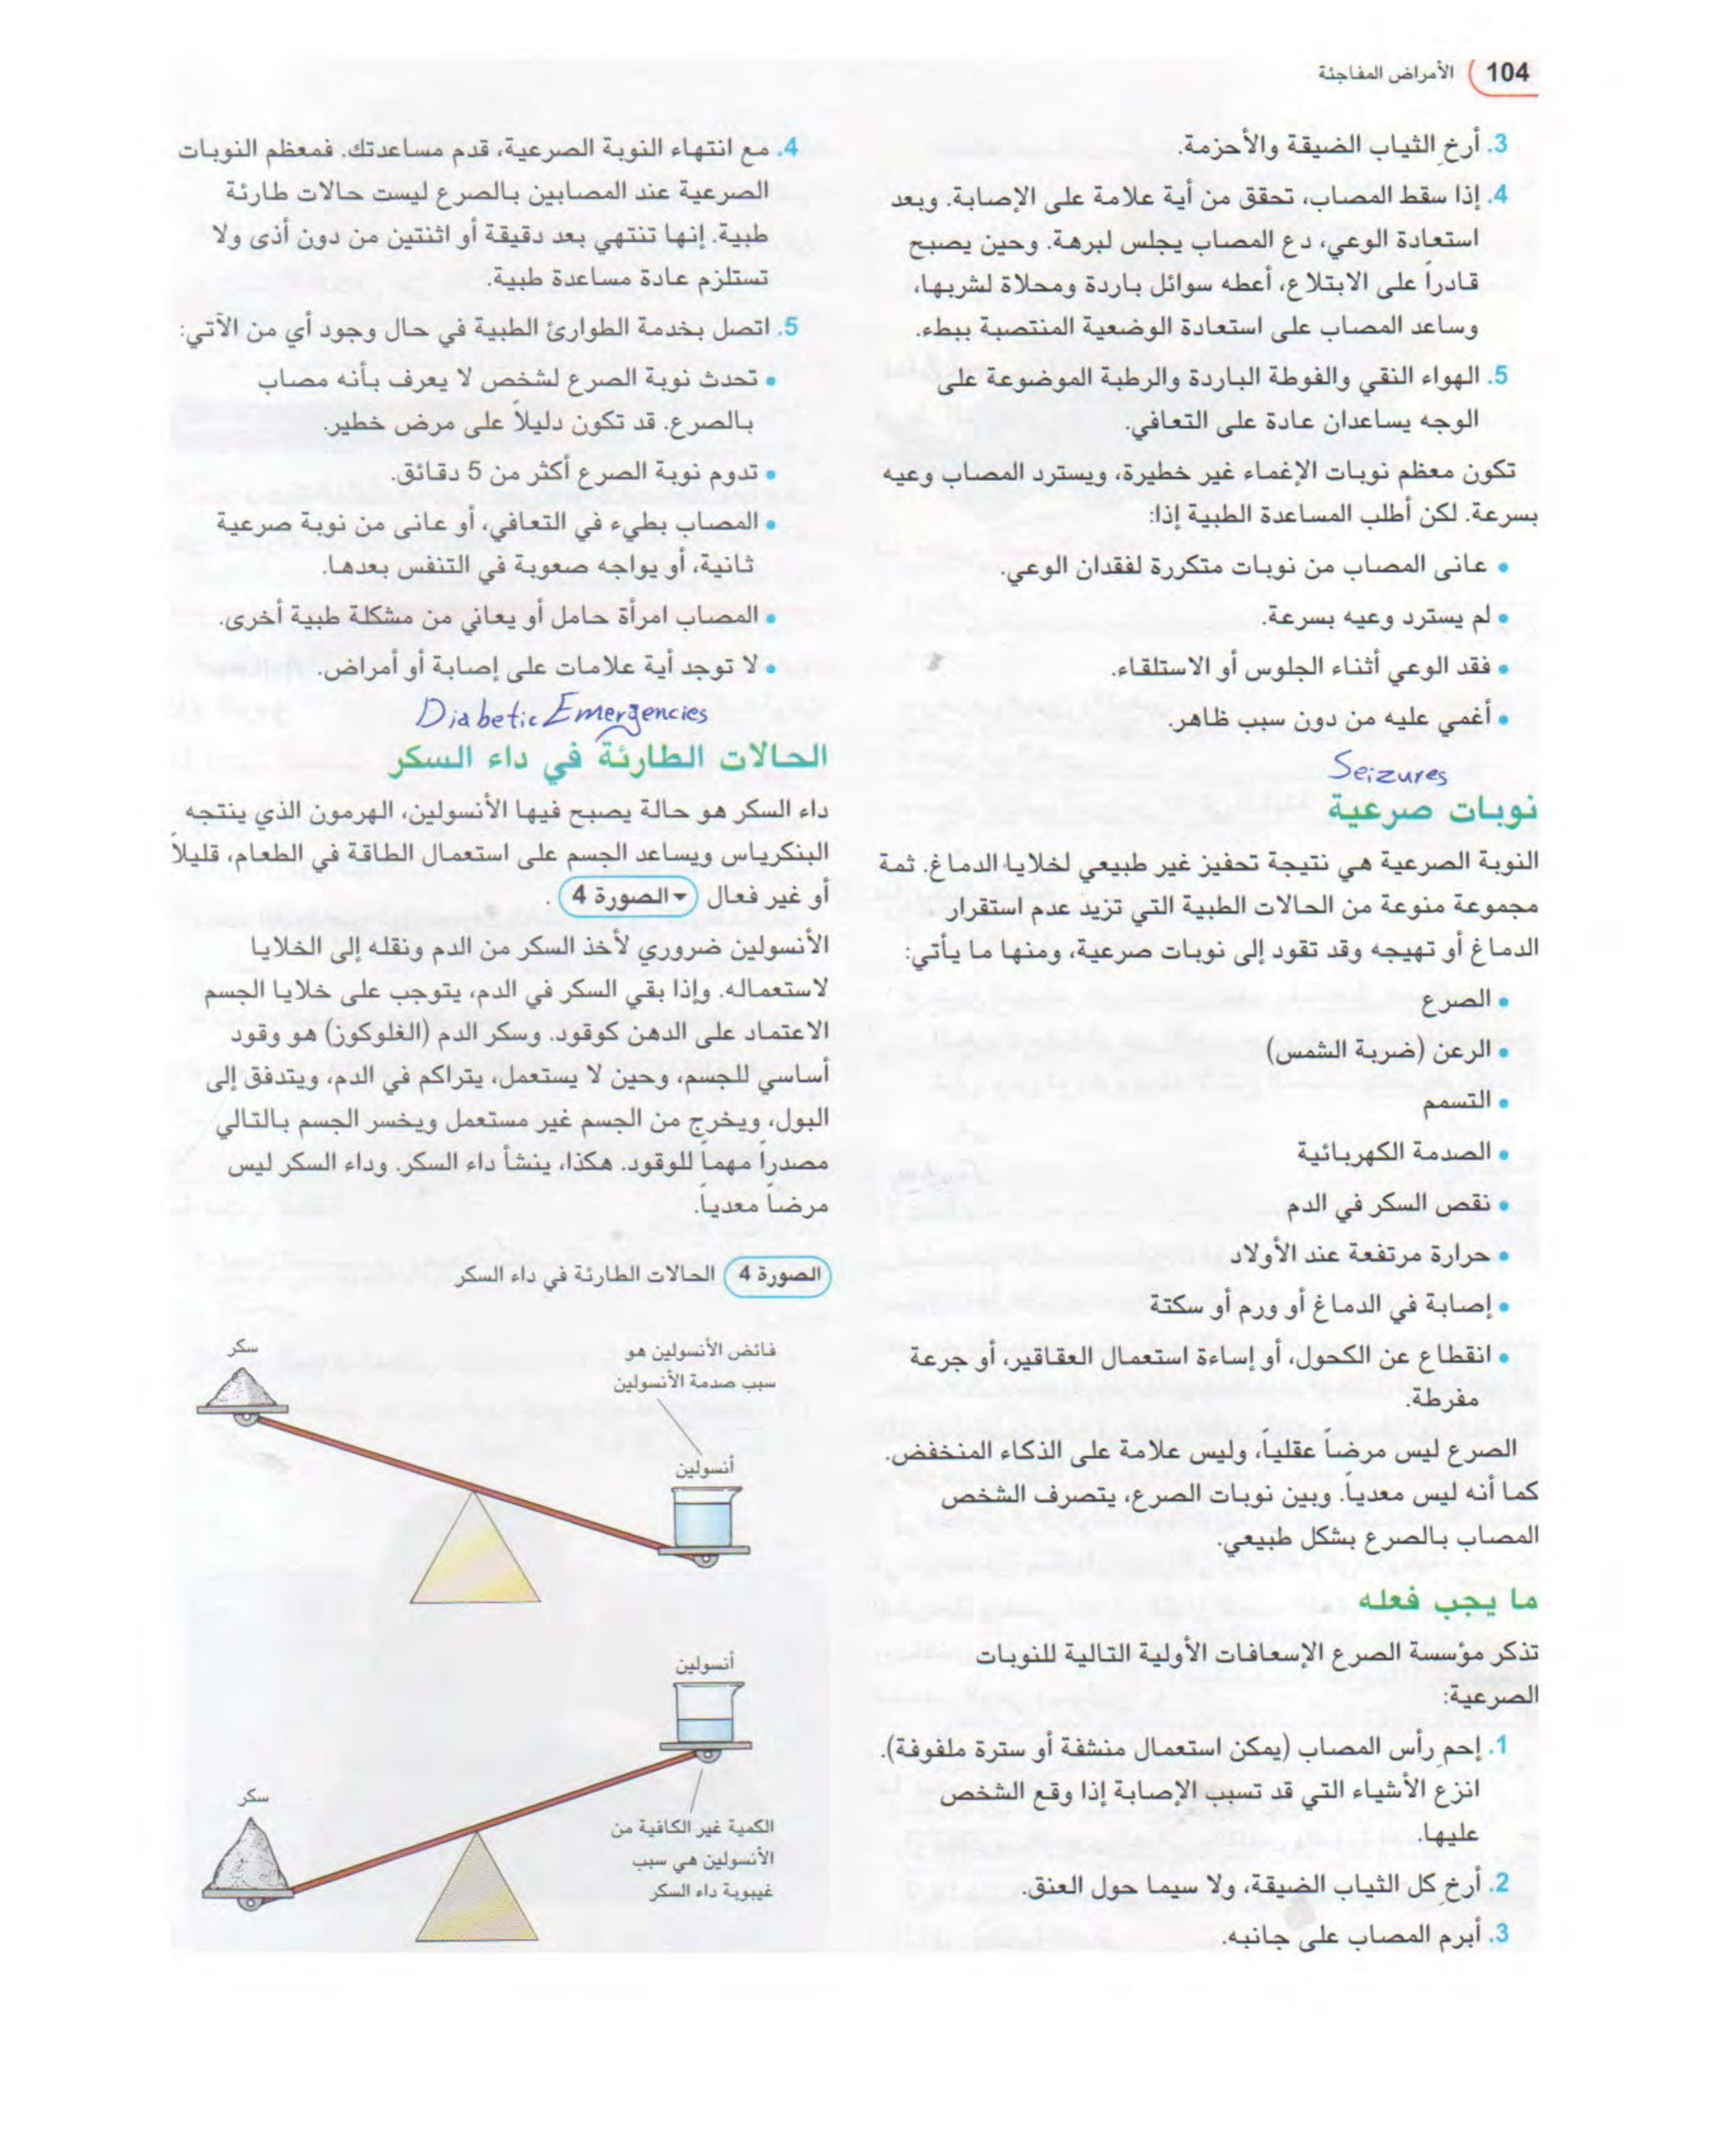 104 الأمراض المفاجئة
3. أرخِ الثياب الضيقة والأحزمة.
4. إذا سقط المصاب، تحقق من أية علامة على الإصابة. وبعد
استعادة الوعي، دع المصاب يجلس لبرهة. وحين يصبح
قادراً على الابتلاع، أعطه سوائل باردة ومحلاة لشربها،
وساعد المصاب على استعادة الوضعية المنتصبة ببطء.
5. الهواء النقي والفوطة الباردة والرطبة الموضوعة على
الوجه يساعدان عادة على التعافي.
تكون معظم نوبات الإغماء غير خطيرة، ويسترد المصاب وعيه
بسرعة. لكن أطلب المساعدة الطبية إذا:
• عانى المصاب من نوبات متكررة لفقدان الوعي.
• لم يسترد وعيه بسرعة.
• فقد الوعي أثناء الجلوس أو الاستلقاء.
• أغمي عليه من دون سبب ظاهر.
Seizures
نوبات صرعية
النوبة الصرعية هي نتيجة تحفيز غير طبيعي لخلايا الدماغ. ثمة
مجموعة منوعة من الحالات الطبية التي تزيد عدم استقرار
الدماغ أو تهيجه وقد تقود إلى نوبات صرعية، ومنها ما يأتي:
• الصرع
• الرعن (ضربة الشمس)
• التسمم
• الصدمة الكهربائية
• نقص السكر في الدم
• حرارة مرتفعة عند الأولاد
• إصابة في الدماغ أو ورم أو سكتة
• انقطاع عن الكحول، أو إساءة استعمال العقاقير، أو جرعة
مفرطة.
الصرع ليس مرضاً عقلياً، وليس علامة على الذكاء المنخفض.
كما أنه ليس معدياً. وبين نوبات الصرع، يتصرف الشخص
المصاب بالصرع بشكل طبيعي.
ما يجب فعله
تذكر مؤسسة الصرع الإسعافات الأولية التالية للنوبات
الصرعية:
1. إحمِ رأس المصاب (يمكن استعمال منشفة أو سترة ملفوفة).
انزع الأشياء التي قد تسبب الإصابة إذا وقع الشخص
عليها.
2. أرخِ كل الثياب الضيقة، ولا سيما حول العنق.
3. أبرم المصاب على جانبه.
4. مع انتهاء النوبة الصرعية، قدم مساعدتك. فمعظم النوبات
الصرعية عند المصابين بالصرع ليست حالات طارئة
طبية. إنها تنتهي بعد دقيقة أو اثنتين من دون أذى ولا
تستلزم عادة مساعدة طبية.
5. اتصل بخدمة الطوارئ الطبية في حال وجود أي من الآتي:
• تحدث نوبة الصرع لشخص لا يعرف بأنه مصاب
بالصرع. قد تكون دليلاً على مرض خطير.
• تدوم نوبة الصرع أكثر من 5 دقائق.
• المصاب بطيء في التعافي، أو عانى من نوبة صرعية
ثانية، أو يواجه صعوبة في التنفس بعدها.
• المصاب امرأة حامل أو يعاني من مشكلة طبية أخرى.
• لا توجد أية علامات على إصابة أو أمراض.
Diabetic Emergencies
الحالات الطارئة في داء السكر
داء السكر هو حالة يصبح فيها الأنسولين، الهرمون الذي ينتجه
البنكرياس ويساعد الجسم على استعمال الطاقة في الطعام، قليلاً
أو غير فعال ▾الصورة 4 .
الأنسولين ضروري لأخذ السكر من الدم ونقله إلى الخلايا
لاستعماله. وإذا بقي السكر في الدم، يتوجب على خلايا الجسم
الاعتماد على الدهن كوقود. وسكر الدم (الغلوكوز) هو وقود
أساسي للجسم، وحين لا يستعمل، يتراكم في الدم، ويتدفق إلى
البول، ويخرج من الجسم غير مستعمل ويخسر الجسم بالتالي
مصدراً مهماً للوقود. هكذا، ينشأ داء السكر. وداء السكر ليس
مرضاً معدياً.
الصورة 4 الحالات الطارئة في داء السكر
فائض الأنسولين هو
سبب صدمة الأنسولين
سكر
أنسولين
أنسولين
سكر
الكمية غير الكافية من
الأنسولين هي سبب
غيبوبة داء السكر